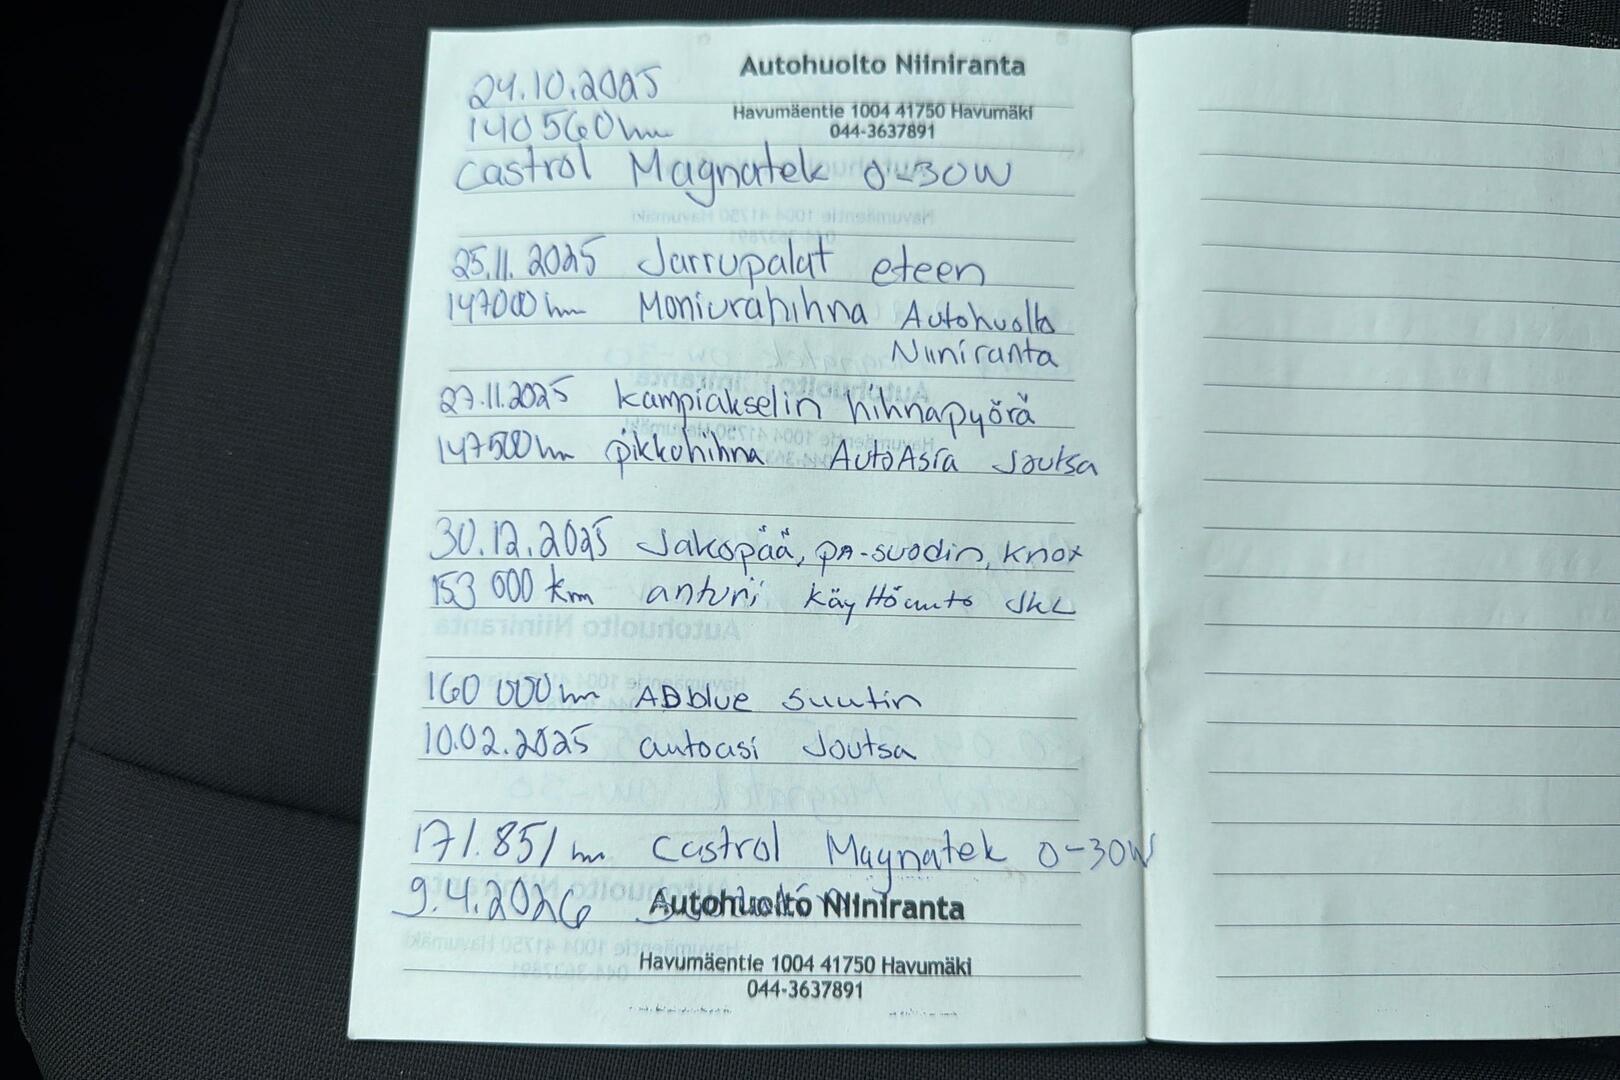 Autohuolto Niiniranta
Havumäentie 1004 41750 Havumäki
044-3637891
24.10.2025
140560km
Castrol Magnatek 0-30W
25.11.2025 Jarrupalat eteen
147000km Moniurahihna Autohuolto
Niiniranta
27.11.2025 kampiakselin hihnapyörä
147500km pikkohihna AutoAsia Joutsa
30.12.2025 Jakopää, pA-suodin, knox
153 000 km anturi käyttöauto JKL
160 000km ADblue suutin
10.02.2025 autoasi Joutsa
171.851km Castrol Magnatek 0-30W
9.4.2026
Autohuolto Niiniranta
Havumäentie 1004 41750 Havumäki
044-3637891